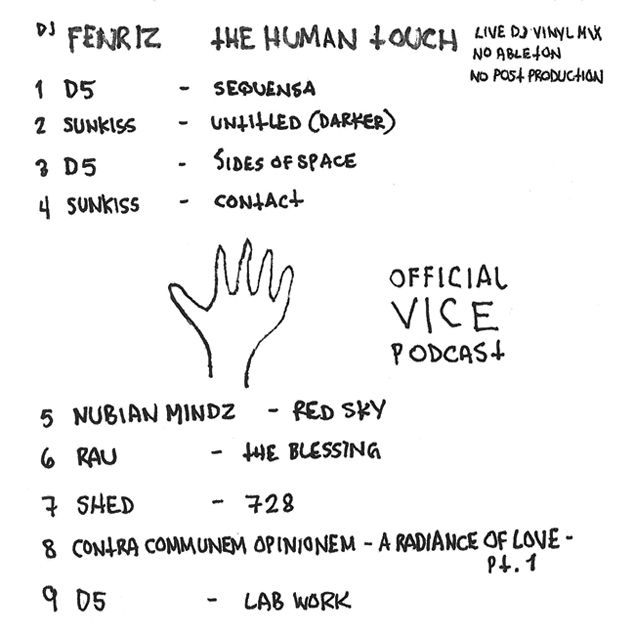 DJ FENRIZ THE HUMAN TOUCH
LIVE DJ VINYL MIX
NO ABLETON
NO POST PRODUCTION
1 D5 - SEQUENSA
2 SUNKISS - UNTITLED (DARKER)
3 D5 - SIDES OF SPACE
4 SUNKISS - CONTACT
OFFICIAL
VICE
PODCAST
5 NUBIAN MINDZ - RED SKY
6 RAU - THE BLESSING
7 SHED - 728
8 CONTRA COMMUNEM OPINIONEM - A RADIANCE OF LOVE -
Pt. 1
9 D5 - LAB WORK